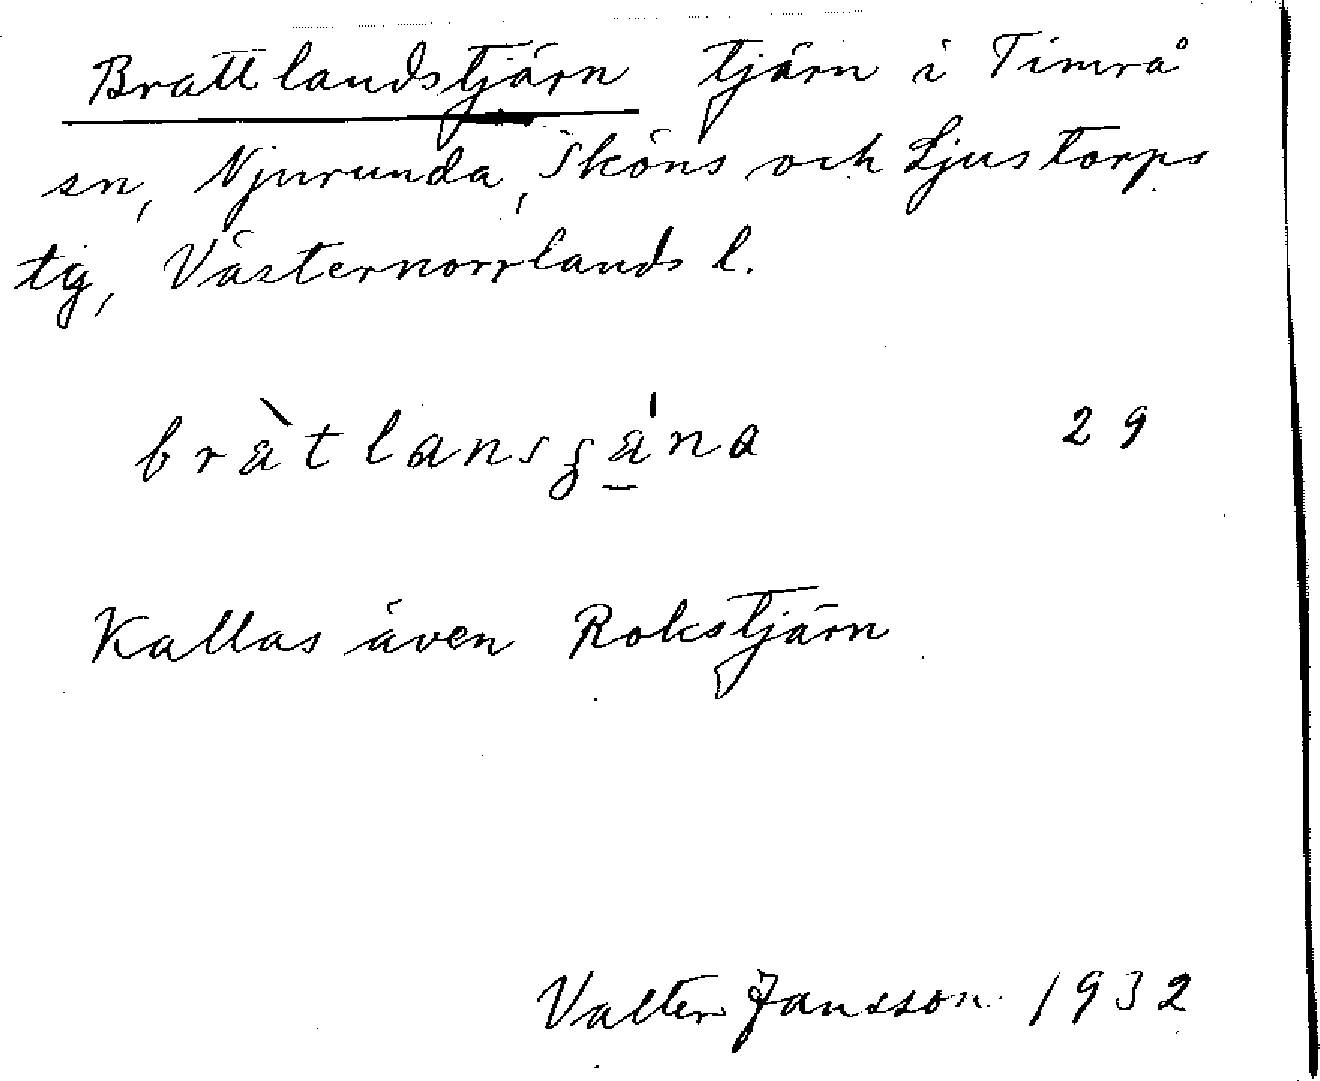 Brattlandstjärn tjärn i Timrå
sn, Njurunda, Sköns och Ljustorps
tig, Västernorrlands l.
29
Kallas även Rokstjärn
Valter Jansson 1932